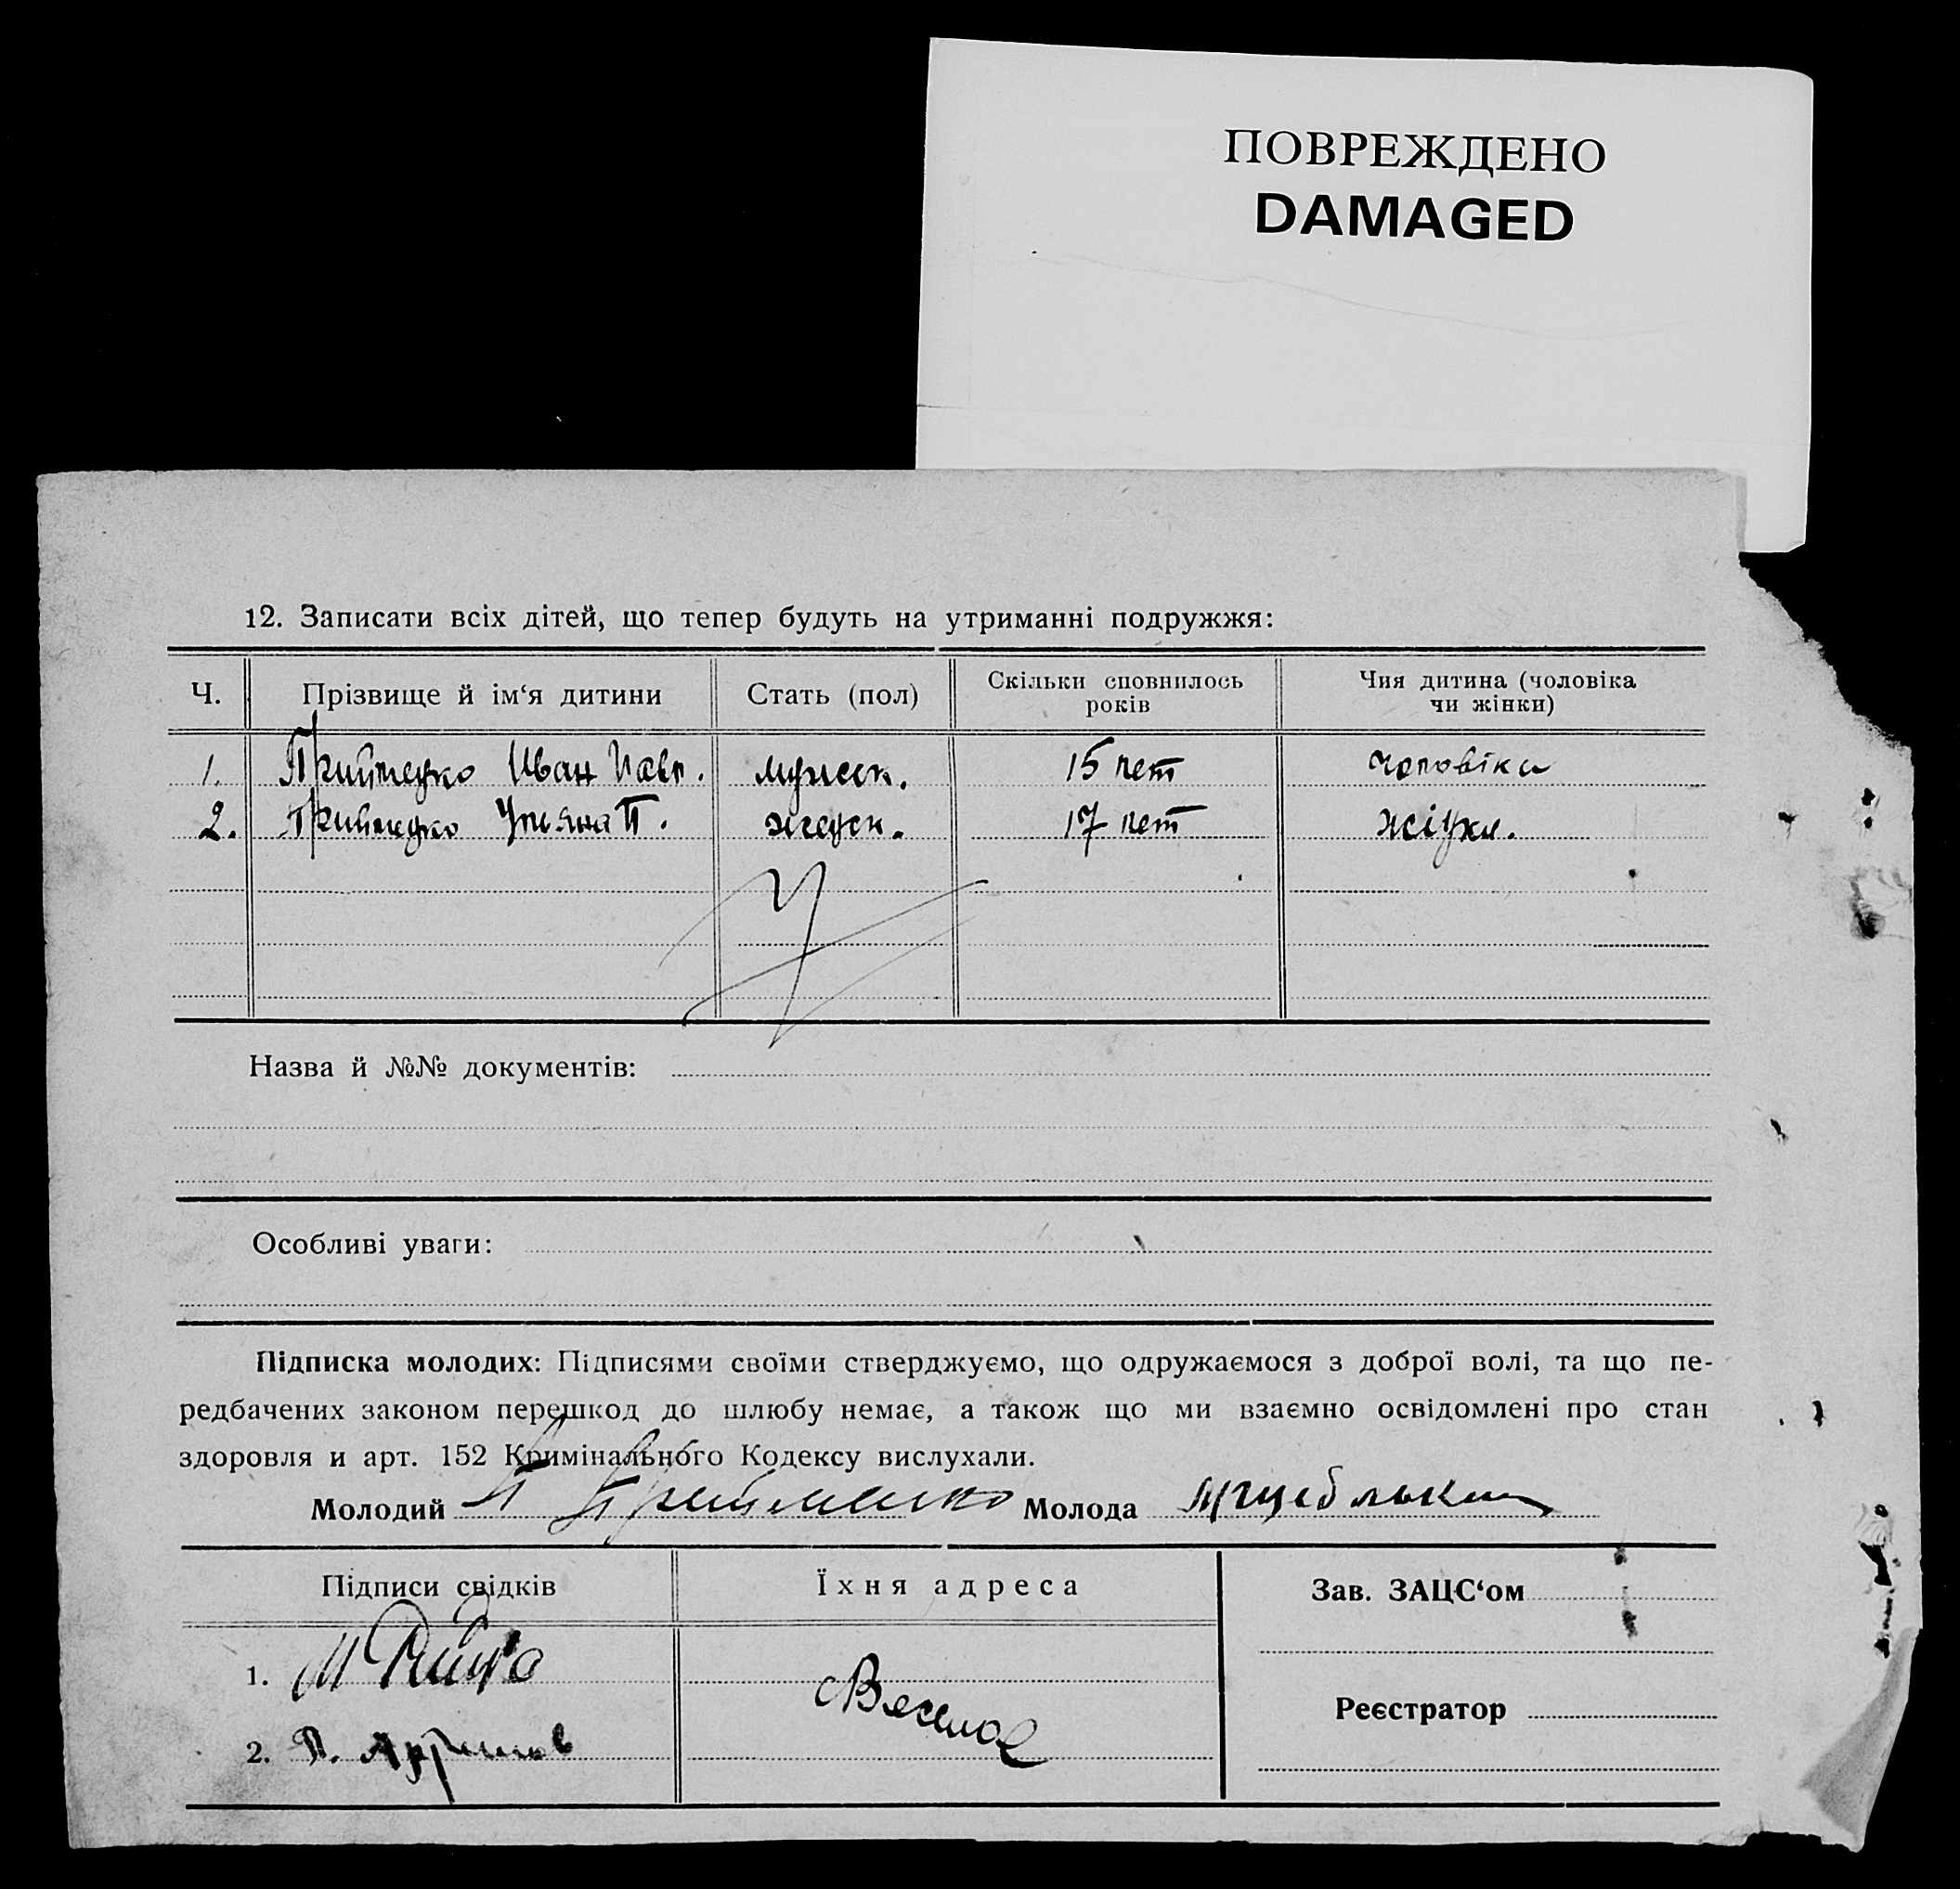 ПОВРЕЖДЕНО
DAMAGED
12. Записати всіх дітей, що тепер будуть на утриманні подружжя:
Ч. Прізвище й ім‘я дитини Стать (пол) Скільки сповнилось років Чия дитина (чоловіка чи жінки)
1. Иван Павл. мужеск. 15 лет чоловіка
2. Ульяна П. женск. 17 лет
Назва й №№ документів:
Особливі уваги:
Підписка молодих: Підписями своїми стверджуємо, що одружаємося з доброї волі, та що пе-
редбачених законом перешкод до шлюбу немає, а також що ми взаємно освідомлені про стан
здоровля и арт. 152 Кримінального Кодексу вислухали.
Молодий Молода
Підписи свідків Їхня адреса Зав. ЗАЦС‘ом
1.
Реєстратор
2.